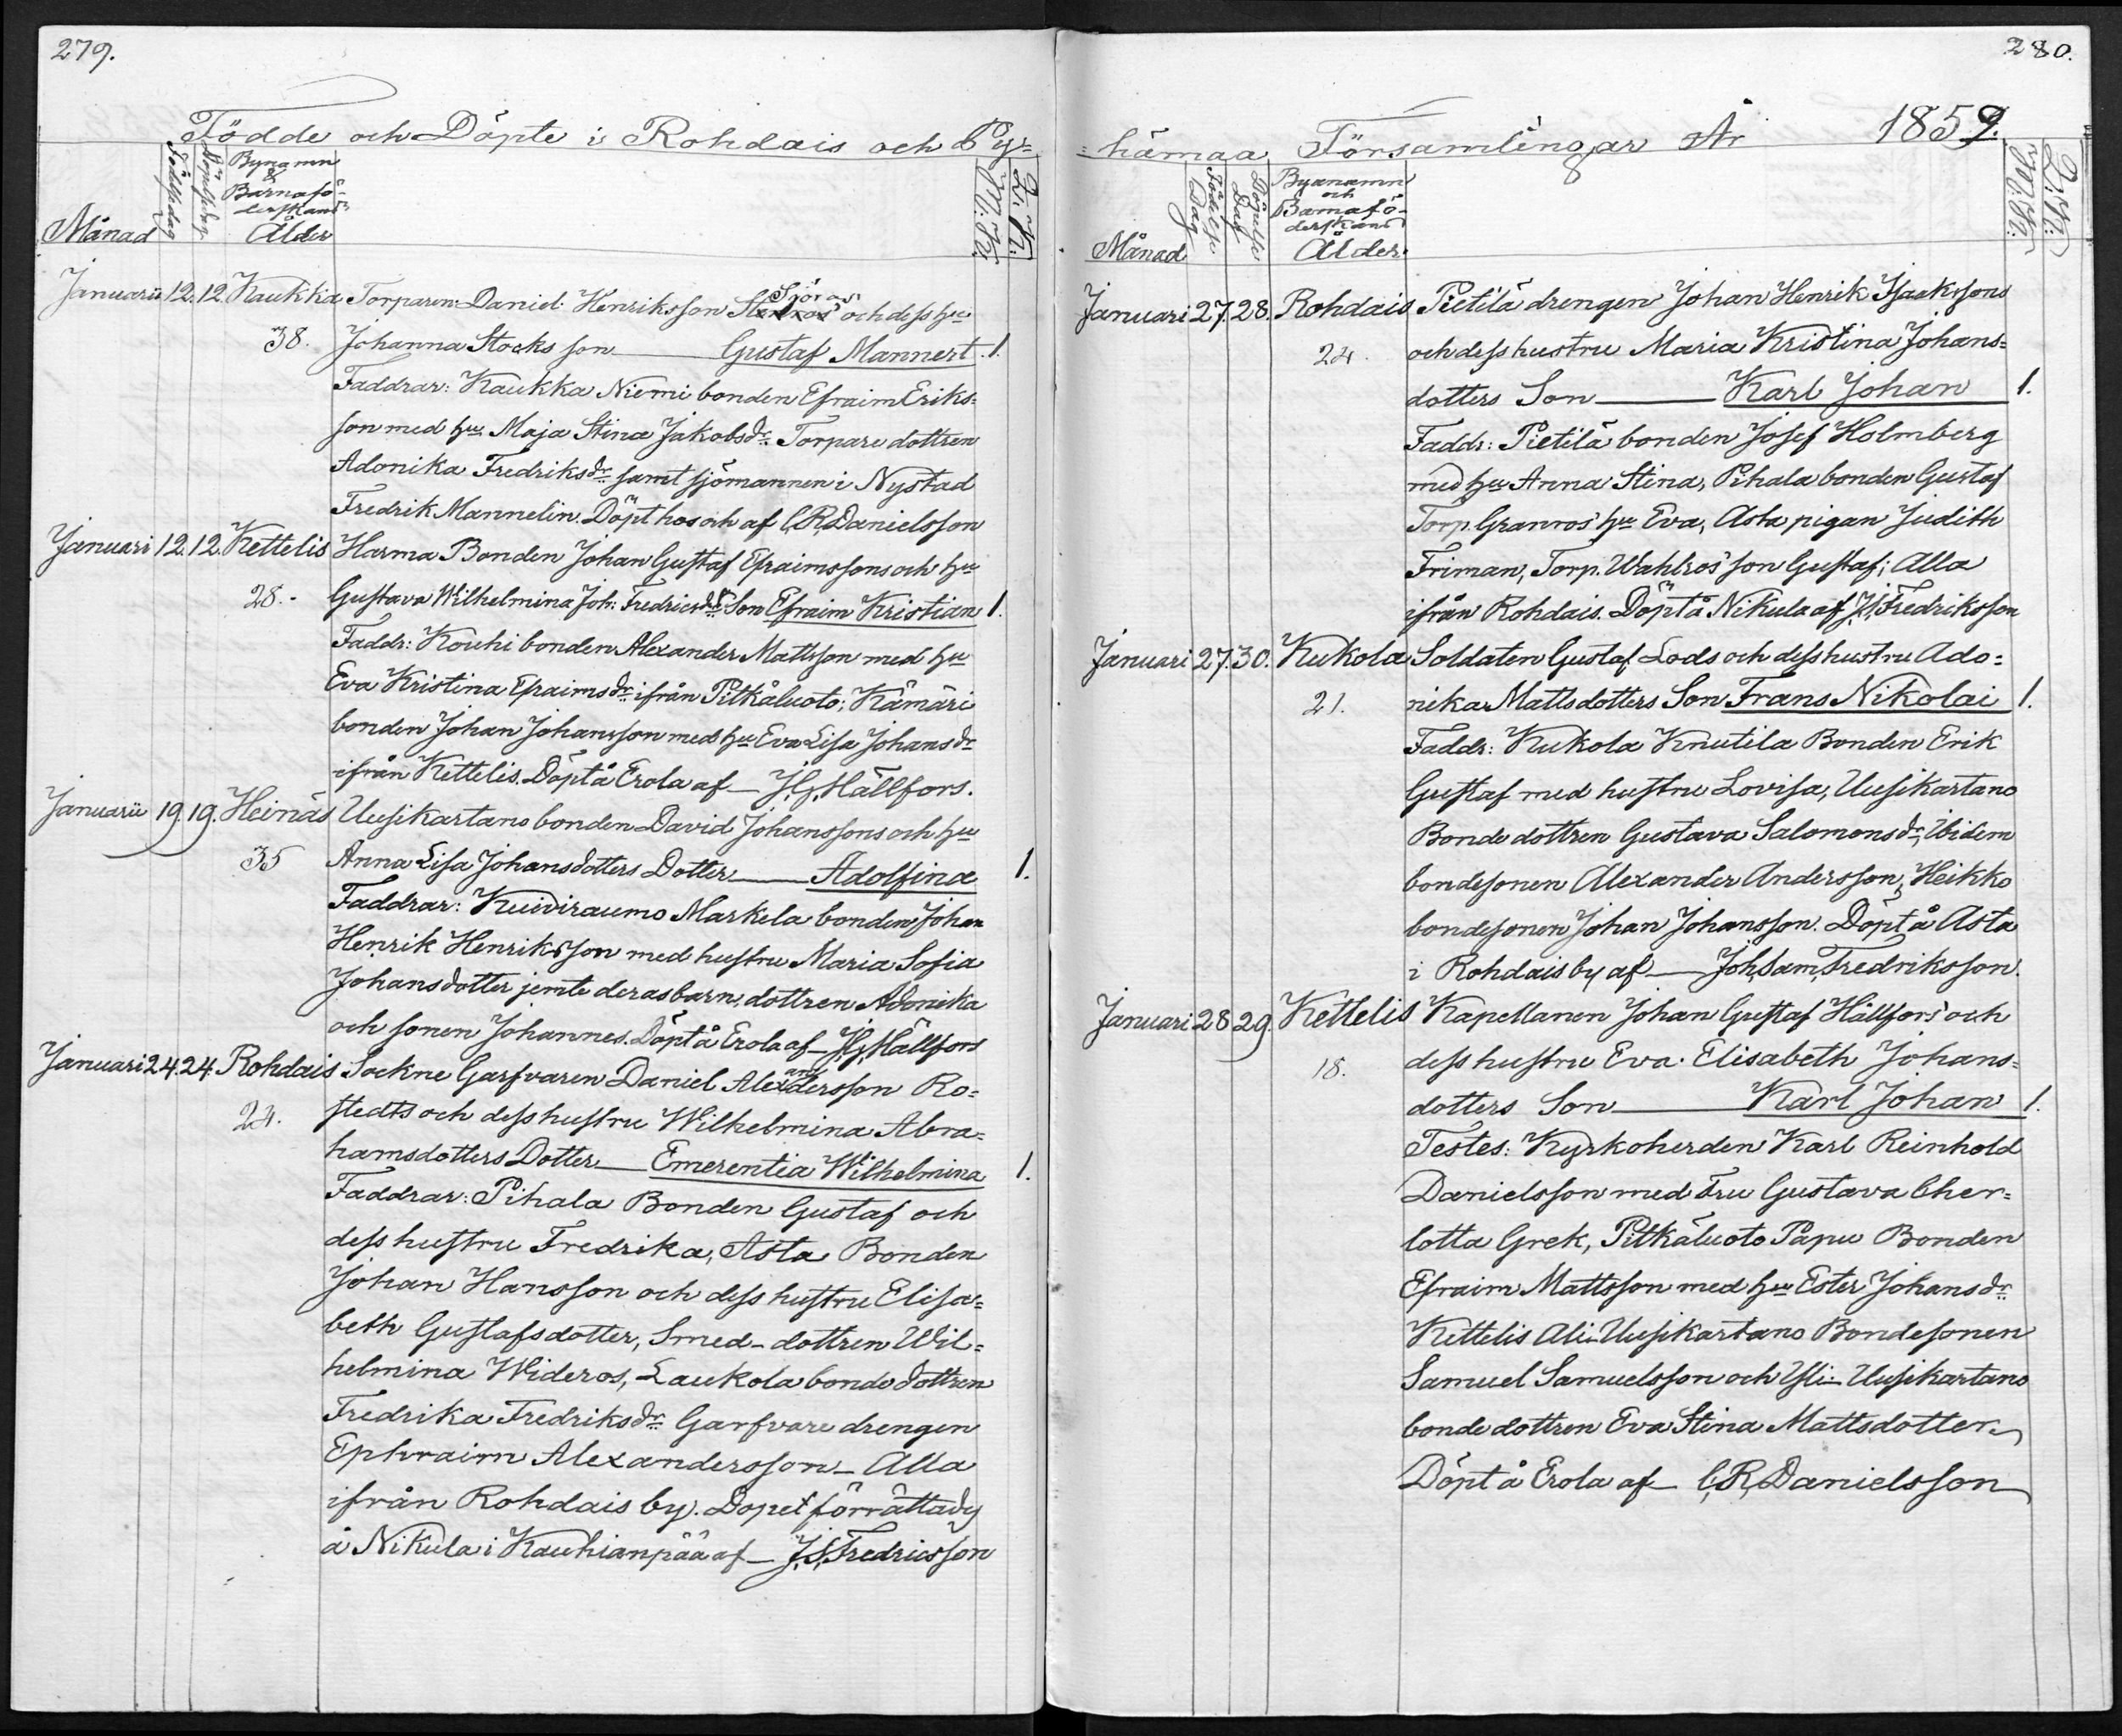 279.
Födde och Döpte i Rohdais och Py=
Månad
Födelsedag
Döpelsedag
Bynamn
&
Barnafö-
derskans
Ålder
M.K.
Q.K.
Januarii 12. 12. Kaukka Torparen Daniel Henriksson Sjöros och dess hu
38. Johanna Stocks son Gustaf Mannert 1.
Faddrar: Kaukka Niemi bonden Efraim Eriks=
son med hu Maja Stina Jakobsdr Torpare dottren
Adonika Fredriksdr samt sjömannen i Nystad
Fredrik Mannelin. Döpt hos och af C,R,Danielsson
Januari 12. 12. Kettelis Harma Bonden Johan Gustaf Efraimssons och hu
28. Gustava Wilhelmina Joh: Fredricsdrs Son Efraim Kristian 1.
Faddr: Kouhi bonden Alexander Mattsson med hu
Eva Kristina Efraimsdr ifrån Pitkäluoto; Kämäri
bonden Johan Johansson med hu Eva Lisa Johansdr
ifrån Kettelis. Döpt å Erola af J,G,Hällfors.
Januarii 19. 19. Heinäs Uusikartano bonden David Johanssons och hu
35 Anna Lisa Johansdotters Dotter Adolfina 1.
Faddrar: Kuiviraumo Markela bonden Johan
Henrik Henriksson med hustru Maria Sofia
Johansdotter jemte deras barn, dottren Adonika
och sonen Johannes. Döpt å Erola af J,G,Hällfors
Januari 24. 24. Rohdais Sockne Garfvaren Daniel Alexandersson Ro=
24. stedts och dess hustru Wilhelmina Abra=
hamsdotters Dotter Emerentia Wilhelmina 1.
Faddrar: Pihala Bonden Gustaf och
dess hustru Fredrika, Asta Bonden
Johan Hansson och dess hustru Elisa=
beth Gustafsdotter, Smed-dottren Wil=
helmina Wideros, Laukola bonde dottren
Fredrika Fredriksdr Garfvare drengen
Ephraim Alexandersson - Alla
ifrån Rohdais by. Dopet förrättady
å Nikula i Kauhianpää af J,S,Fredricsson
280.
=hämaa Församlingar År 1859.
Månad
Födelse
Dag
Döpelse
Dag
Byanamn
och
Barnafö-
derskans
Ålder.
M.K.
Q.K.
Januari 27. 28. Rohdais Pietilä drengen Johan Henrik Isaakssons
24. och dess hustru Maria Kristina Johans=
dotters Son Karl Johan 1.
Faddr: Pietilä bonden Josef Holmberg
med hu Anna Stina, Pihala bonden Gustaf
Torp. Granros' hu Eva, Asta pigan Judith
Friman, Torp. Wahlros' son Gustaf; Alla
ifrån Rohdais. Döpt å Nikula af J,S,Fredriksson
Januari 27. 30. Kukola Soldaten Gustaf Lods och dess hustru Ado=
21. nika Mattsdotters Son Frans Nikolai 1.
Faddr: Kukola Knutila Bonden Erik
Gustaf med hustru Lovisa, Uusikartano
Bonde dottren Gustava Salomonsdr, Ibidem
bondesonen Alexander Andersson, Heikko
bondesonen Johan Johansson. Döpt å Asta
i Rohdais by af Joh,Sam,Fredriksson.
Januari 28 29. Kettelis Kapellanen Johan Gustaf Hällfors' och
18. dess hustru Eva Elisabeth Johans=
dotters Son Karl Johan 1.
Testes: Kyrkoherden Karl Reinhold
Danielsson med Fru Gustava Cher=
lotta Grek, Pitkäluoto Papu Bonden
Efraim Mattsson med hu Ester Johansdr
Kettelis Ali-Uusikartano Bondesonen
Samuel Samuelsson och Yli-Uusikartano
bonde dottren Eva Stina Mattsdotter
Döpt å Erola af C,R,Danielsson